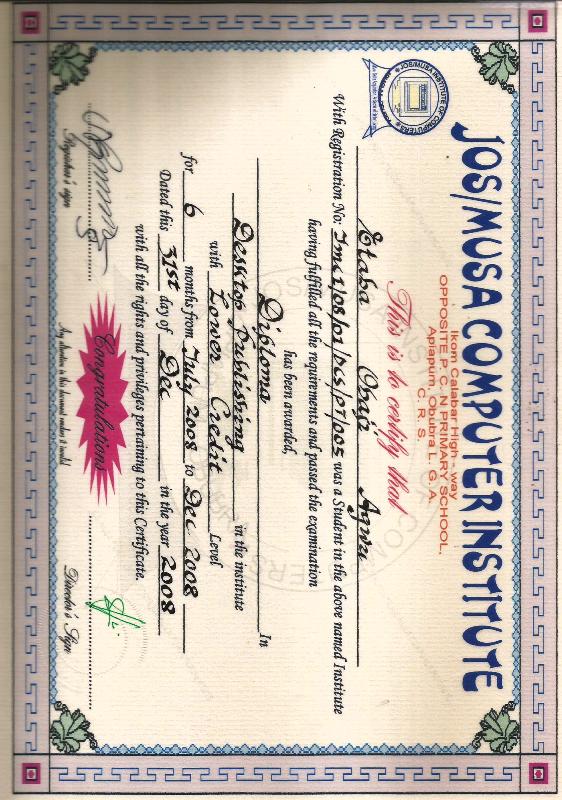 JOS/MUSA COMPUTER INSTITUTE
Ikom Calabar High - way
OPPOSITE P. C. N PRIMARY SCHOOL,
Apiapum, Obubra L. G. A.
C. R. S.
JOS/MUSA INSTITUTE OF COMPUTERS
This is to certify that
Etaba Obaji Agwu
With Registration No: was a Student in the above named Institute
having fulfilled all the requirements and passed the examination
has been awarded,
Diploma In
Desktop Publishing in the institute
with Lower Credit Level
for 6 months from July 2008 to Dec 2008
Dated this 31st day of Dec in the year 2008
with all the rights and privileges pertaining to this Certificate.
Congratulations
Registrar's sign
Director's Sign
Any alteration in this document renders it invalid